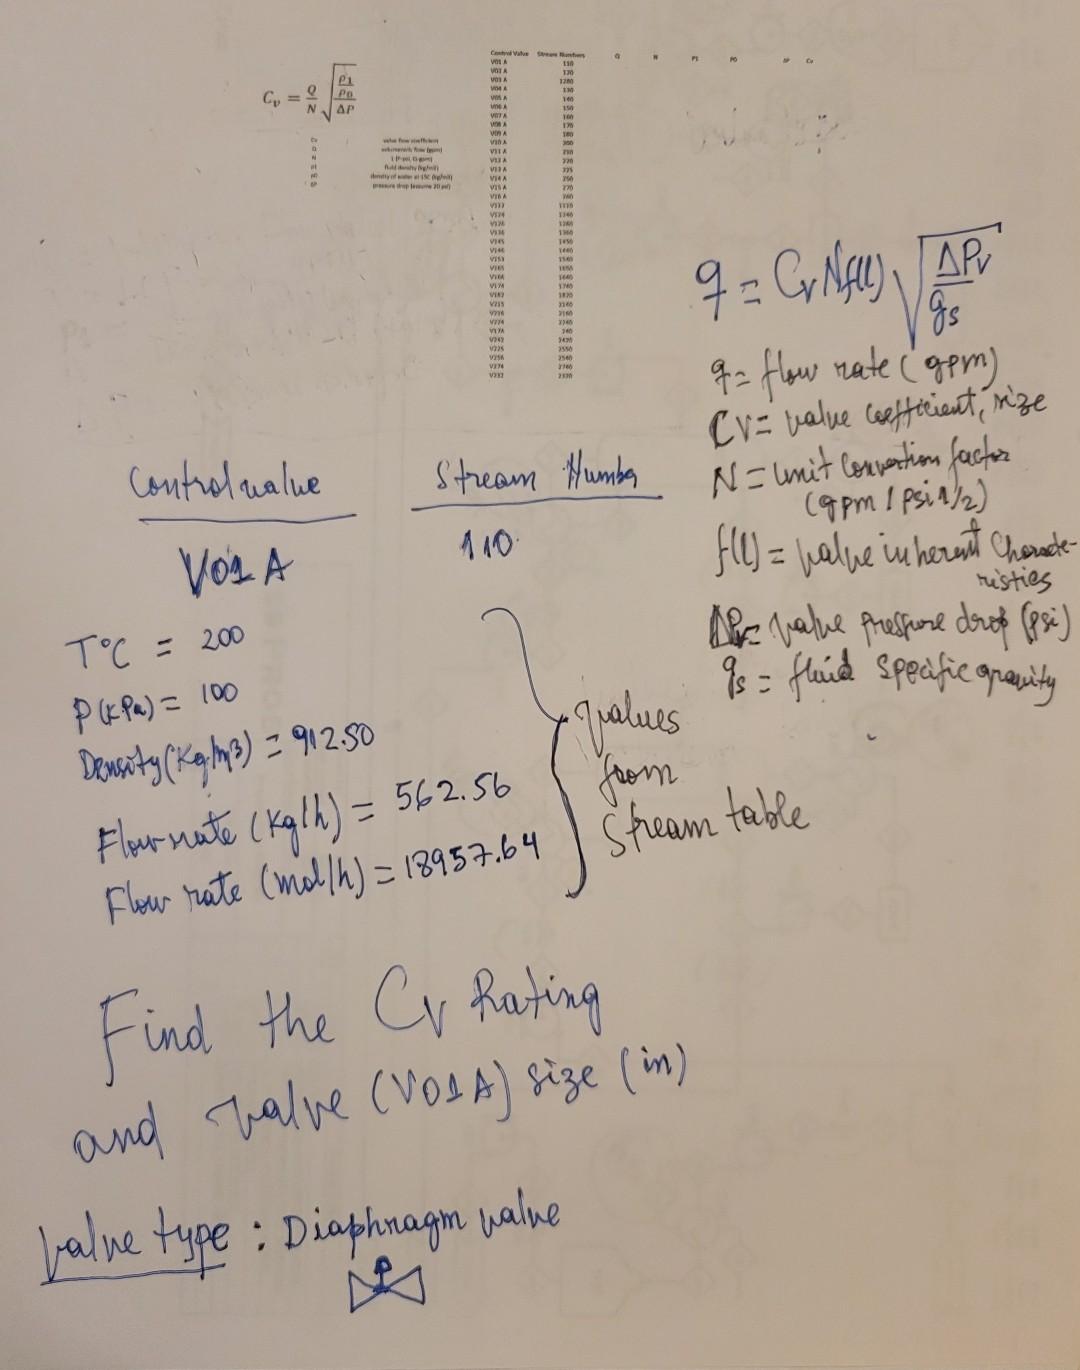 Control Valve Stream Numbers Q N P1 P0 ΔP Cv
V01 A 110
V02 A 120
V03 A 1280
V04 A 130
V05 A 140
V06 A 150
V07 A 160
V08 A 170
V09 A 180
V10 A 200
V11 A 210
V12 A 220
V13 A 225
V14 A 250
V15 A 270
V16 A 260
1310
V124 1240
V126 1260
V136 1360
V145 1450
V146 1460
V153 1540
V165 1650
V166 1640
V174 1740
V182 1820
V215 2140
V216 2160
V224 2240
V17A 240
V242 2420
V225 2550
V256 2540
V274 2740
V232 2320
Cv = Q/N √((ρ1/ρ0)/ΔP)
Cv valve flow coefficient
Q volumetric flow (gpm)
N 1 (P-psi, Q-gpm)
ρ1 fluid density (kg/m3)
ρ0 density of water at 15C (kg/m3)
ΔP pressure drop (assume 20 psi)
q = Cv N f(l) √(ΔPv/gs)
q = flow rate (gpm)
Cv = valve coefficient, size
N = unit convertion factor
(gpm / psi 1/2)
f(l) = valve inherent Characte-
ristics
ΔPv = valve pressure drop (psi)
gs = fluid specific gravity
Control valve Stream Number
V01 A 110
T°C = 200
P (kPa) = 100
Density (Kg/m3) = 912.50
Flow rate (Kg/h) = 562.56
Flow rate (mol/h) = 18957.64
values
from
Stream table
Find the Cv Rating
and valve (V01A) size (in)
valve type : Diaphragm valve